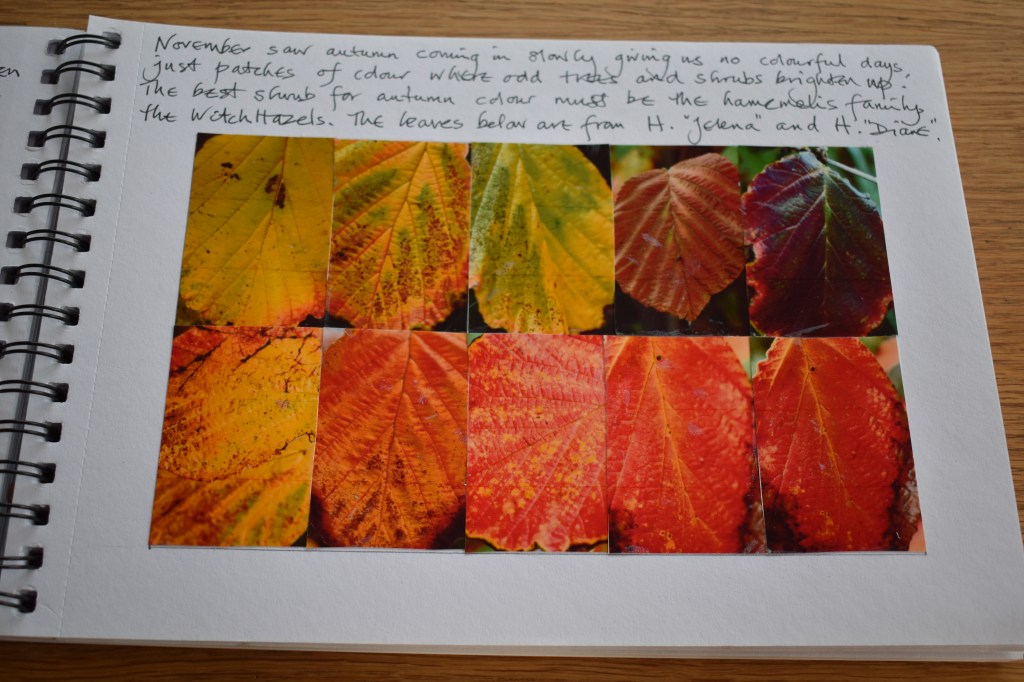 en
November saw autumn coming in slowly giving us no colourful days,
just patches of colour where odd trees and shrubs brighten up.
The best shrub for autumn colour must be the hamemelis family,
the Witch Hazels. The leaves below are from H. "Jelena" and H. "Diane".